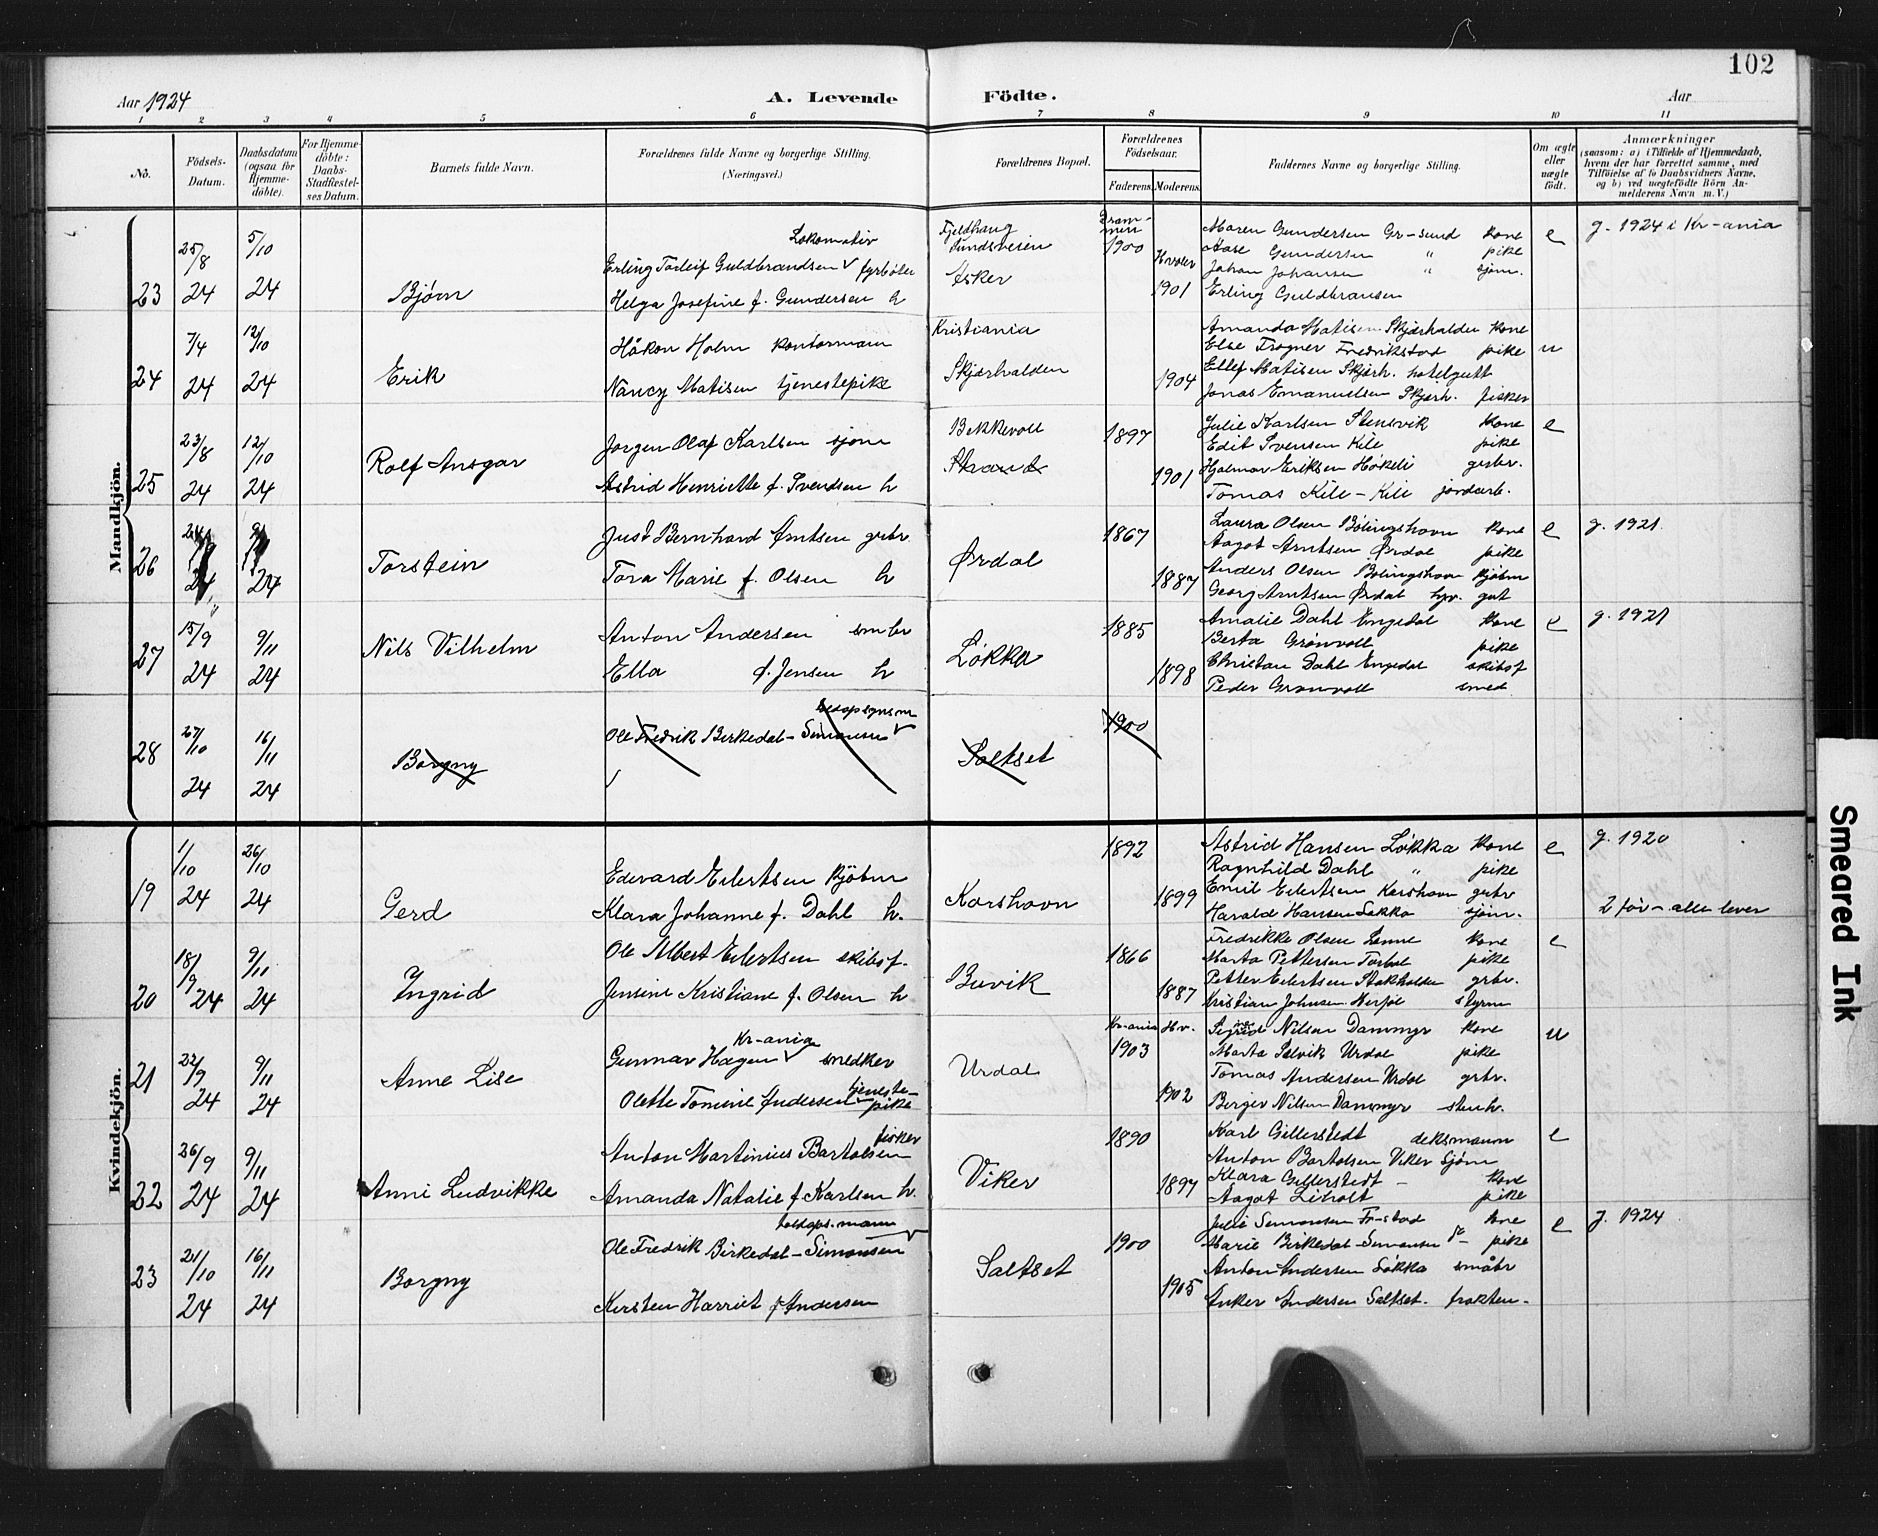 102
Aar 1924
A. Levende Födte.
Aar
1 2 3 4 5 6 7 8 9 10 11
No.
Födsels-Datum.
Daabsdatum (ogsaa for Hjemme-döbte).
For Hjemme-döbte: Daabs-Stadfæstel-ses Datum.
Barnets fulde Navn.
Forældrenes fulde Navne og borgerlige Stilling.
(Næringsvei.)
Forældrenes Bopæl.
Forældrenes Födselsaar.
Faderens. Moderens.
Faddernes Navne og borgerlige Stilling.
Om ægte eller uægte födt.
Anmærkninger
(saasom: a) i Tilfælde af Hjemmedaab,
hvem der har forrettet samme, med
Tilföielse af to Daabsvidners Navne,
og b) ved uægtefödte Börn An-
melderens Navn m. V.)
Mandkjön.
23 25/8 24 5/10 24 Bjørn
Lokomotiv
Erling Torleif Guldbrandsen fyrbøter
Helga Josefine f. Gundersen h
Fjeldhaug
Asker
Dram-men 1900
Hvaler 1901
Maren Gundersen Gr-sund kone
Aase Gundersen " pike
Johan Johansen " sjøm.
Erling Guldbransen
e
g. 1924 i Kr-ania
24 7/4 24 12/10 24 Erik
Håkon Holm kontormann
Nancy Matisen tjenestepike
Kristiania
Skjærhalden
1904
Amanda Matisen Skjærhalden kone
Else Trogner Fredrikstad pike
Ellef Matisen Skjærh. hotelgutt
Jonas Emanuelsen Skjærh. fisker
u
25 23/8 24 12/10 24 Rolf Ansgar
Jørgen Olaf Karlsen sjøm
Astrid Henriette f. Svendsen h
Bekkevoll
Strand
1897
1901
Julie Karlsen Stensvik kone
Edit Svensen Kile pike
Hjalmar Eriksen Høkeli grbr.
Tomas Kile - Kile jordarb.
e
26 24 24 Torstein
Just Bernhard Arntsen grbr
Tora Marie f. Olsen h
Ørdal
1867
1887
Laura Olsen Bølingshavn kone
Aagot Arntsen Ørdal pike
Anders Olsen Bølingshavn kjøbm
Georg Arntsen Ørdal hyr. gut
e
g. 1921.
27 15/9 24 9/11 24 Nils Vilhelm
Anton Andersen smbr
Ella f. Jensen h
Løkka
1885
1898
Amalie Dahl Engedal kone
Berta Grønvoll pike
Christian Dahl Engedal skibsf
Peder Grønvoll smed
e
g. 1921
28 27/10 24 16/11 24 Borgny
Ole Fredrik Birkedal-Simonsen
Saltset
1900
Kvindekjön.
19 1/10 24 26/10 24 Gerd
Edevard Eilertsen kjøbm
Klara Johanne f. Dahl h.
Korshavn
1892
1899
Astrid Hansen Løkka kone
Ragnhild Dahl " pike
Emil Eilertsen Korshavn grbr
Harald Hansen Løkka sjøm.
e
g. 1920
2 før - alle lever
20 18/9 24 9/11 24 Ingrid
Ole Albert Eilertsen skibsf.
Jensine Kristiane f. Olsen h
Buvik
1866
1887
Fredrikke Olsen kone
Marta Pettersen pike
Petter Eilertsen Stokholen grbr.
Kristian Johnsen styrm
e
21 22/9 24 9/11 24 Anne Lise
Kr-ania
Gunnar Hagen snedker
Olette Tomine Andersen tjeneste-pike
Urdal
Kr-ania 1903
Hv. 1902
Sigrid Nilsen Dammyr kone
Marta Selvik Urdal pike
Tomas Andersen Urdal grbr.
Birger Nilsen Dammyr stenh.
u
22 26/9 24 9/11 24 Anni Ludvikke
fisker
Anton Martinius Bartolsen
Amanda Natalie f. Karlsen h.
Viker
1890
1897
Karl Gillerstedt deksmann
Anton Bartolsen Viker Sjøm
Klara Gillerstedt - kone
Aagot Liholt pike
e
23 21/10 24 16/11 24 Borgny
toldops.mann
Ole Fredrik Birkedal-Simonsen
Kirsten Harriet f Andersen
Saltset
1900
1905
Julie Simonsen Fr-stad kone
Marie Birkedal-Simonsen pike
Anton Andersen Løkka småbr
Anker Andersen Saltset.
e
g. 1924
Smeared Ink